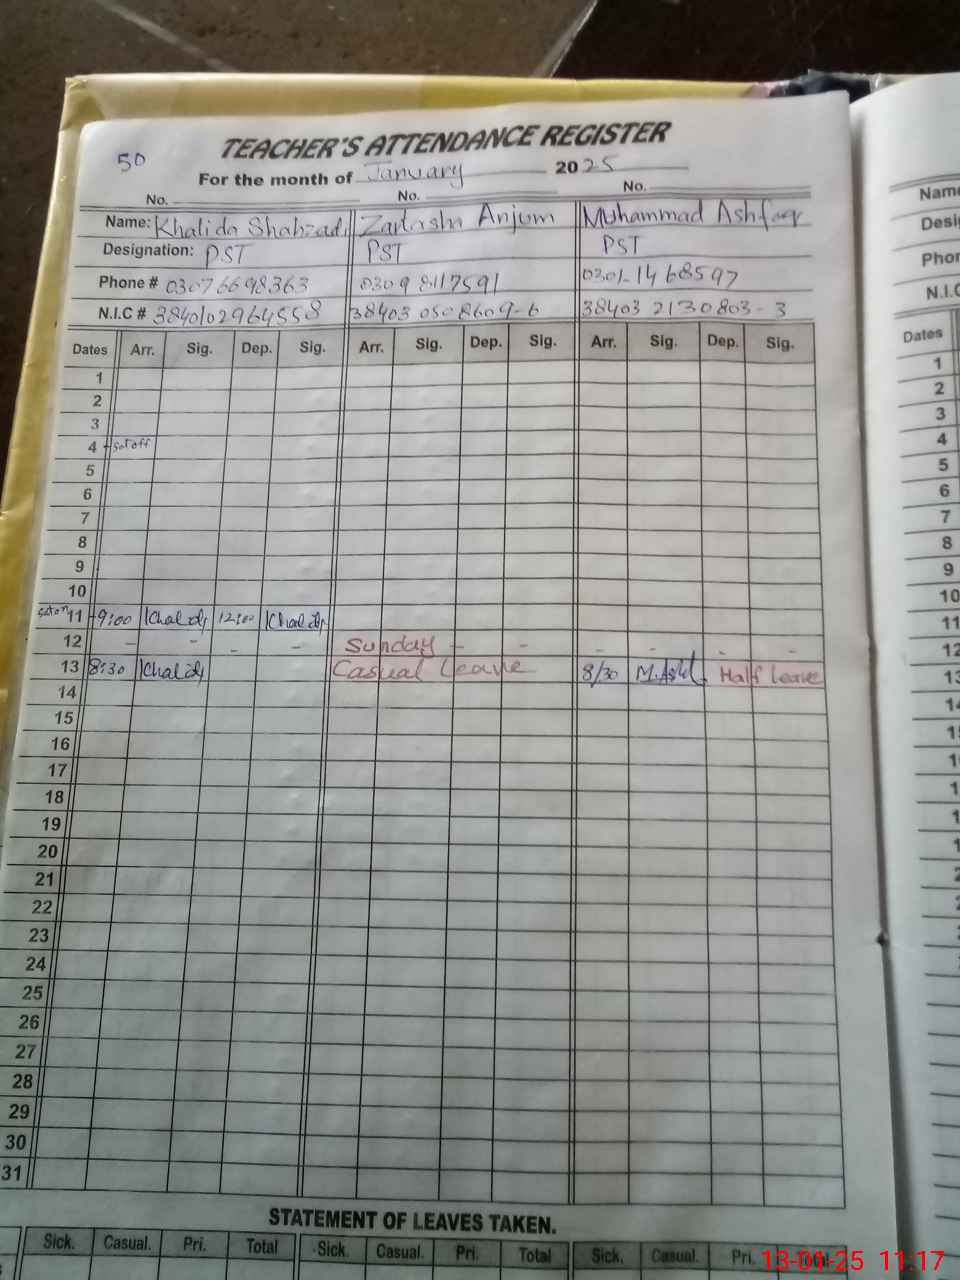 50
TEACHER'S ATTENDANCE REGISTER
For the month of January 2025
No. No. No.
Name: Khalida Shahzadi Zartasha Anjum Muhammad Ashfaq
Designation: PST PST PST
Phone # 03076698363 0309 8117591 0301-1468597
N.I.C # 3840102964558 38403 0508609-6 38403 2130803-3
Dates Arr. Sig. Dep. Sig. Arr. Sig. Dep. Sig. Arr. Sig. Dep. Sig.
1
2
3
4 Sat off
5
6
7
8
9
10
11 9:00 Khalida 12:00 Khalida
12 - - - - Sunday - - - - - -
13 8:30 Khalida Casual leave 8/30 M.Ash Half leave
14
15
16
17
18
19
20
21
22
23
24
25
26
27
28
29
30
31
STATEMENT OF LEAVES TAKEN.
Sick. Casual. Pri. Total Sick. Casual. Pri. Total Sick. Casual. Pri.
Name
Dates
1
2
3
4
5
6
7
8
9
10
11
12
13
13-01-25 11:17